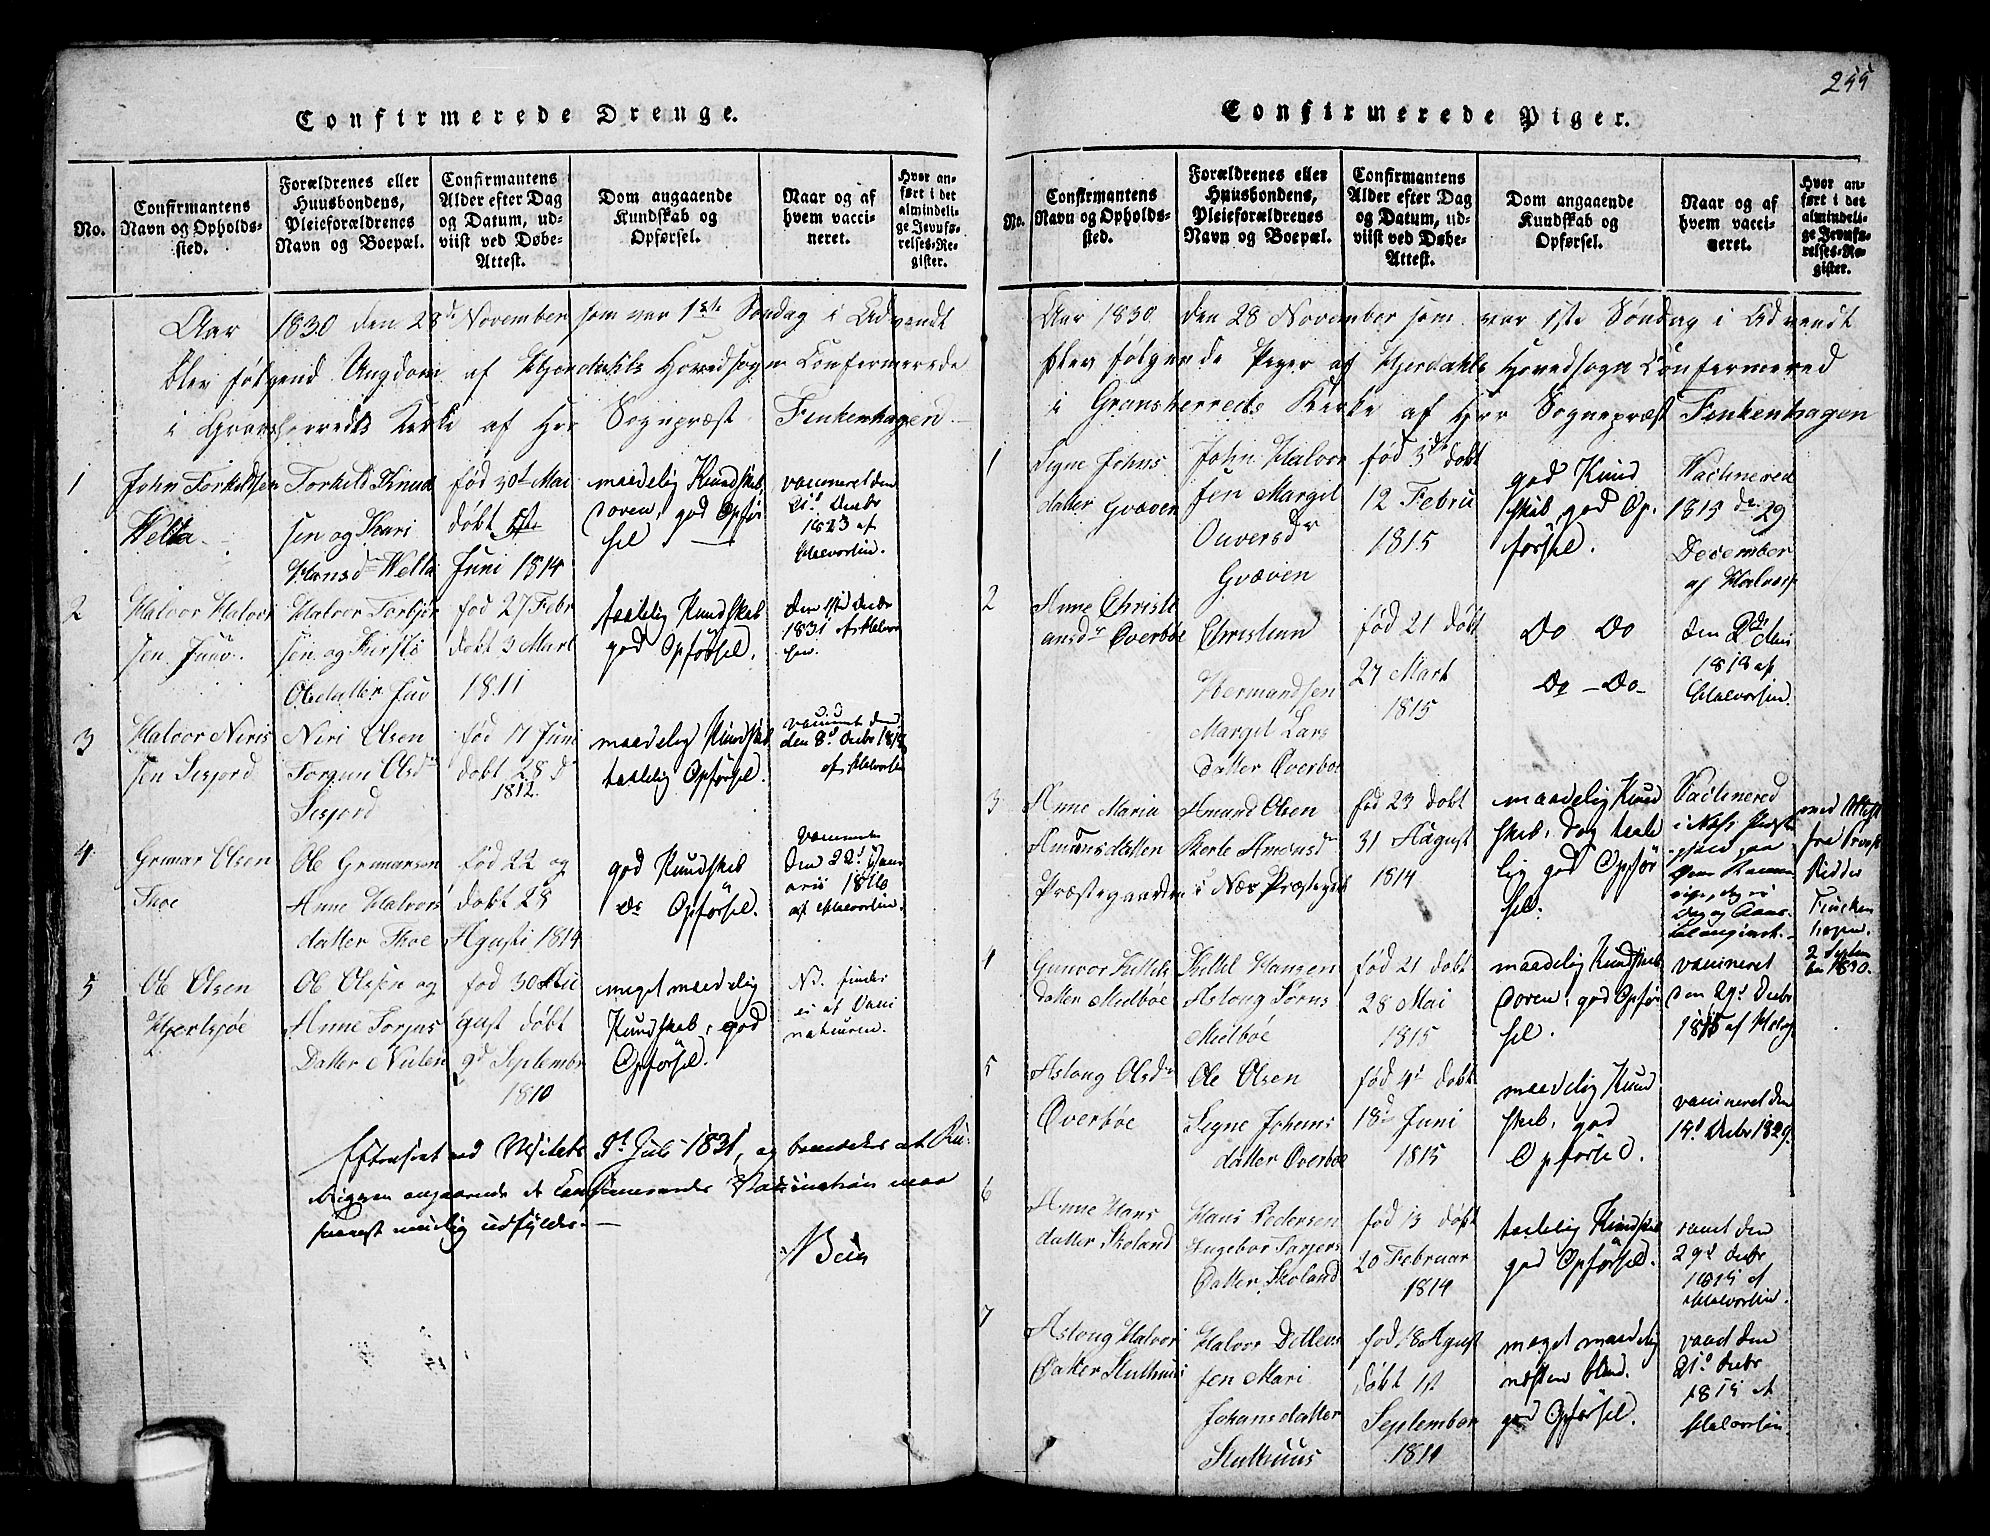 Confirmerede Drenge.
No.
Confirmantens
Navn og Opholds-
sted.
Forældrenes eller
Huusbondens,
Pleieforældrenes
Navn og Boepæl.
Confirmantens
Alder efter Dag
og Datum, ud-
viist ved Døbe-
Attest.
Dom angaaende
Kundskab og
Opførsel.
Naar og af
hvem vacci-
neret.
Hvor an-
ført i det
almindeli-
ge Jevnfø-
relses-Re-
gister.
Aar 1830 den 28d November som var 1ste Søndag i Advendt
blev følgend Ungdom af Hjerdahls Hovedsogn Confermerede
i Gransherreds Kirke af Hr Sognpræst Finkenhagen
1
John Torkildsen
Welta
Torkild Knud
sen og Kari
Hansd Welta
fød 30d Mai
døbt
Juni 1814
maadelig Kundskab
god Opfør
sel
den
21d Decbr
1823 af
Halvorsen.
2
Halvor Halvor
sen Juuv.
Halvor Torbjør
sen og Kirsti
Olsdatter Juv
fød 27 Febr
døbt 3 Mart
1811
taalelig Kundskab
god Opførsel.
den 1ste Decbr
1831 af Halvor
sen.
3
Halvor Niris
sen Sisjord
Niri Olsen
Torgun Olsd
Sisjord
fød 17 Juni
døbt 28 d
1812.
maadelig Kundskab
taalelig Opførsel.
den
den 8d Decbr
af Halvorsen
4
Grimar Olsen
Skoe
Ole Grimarsen
Anne Halvors
datter Skoe
fød 22 og
døbt 28
Agusti 1814
god Kundskab
Do Opførsel.
den 22d Janu
arii 1816
af Halvorsen.
5
Ole Olsen
Hjertsjøe
Ole Olsen og
Anne Torjus
Datter
fød 30 Au
gust døbt
9d Septembr
1810
meget maadelig
Kundskab, god
Opførsel.
NB. findes
ei at være
Efterseet ved Visitats 9d Juli 1831, og bemærkes at Ru-
brigen angaaende de Confirmeredes Vaccination maa
snarest muelig udfyldes.
255
Confirmerede Piger.
No.
Confirmantens
Navn og Opholds-
sted.
Forældrenes eller
Huusbondens,
Pleieforældrenes
Navn og Boepæl.
Confirmantens
Alder efter Dag
og Datum, ud-
viist ved Døbe-
Attest.
Dom angaaende
Kundskab og
Opførsel.
Naar og af
hvem vacci-
neret.
Hvor an-
ført i det
almindeli-
ge Jevnfø-
relses-Re-
gister.
Aar 1830 den 28 November som var 1ste Søndag i Advendt
blev følgende Piger af Hjerdahls Hovedsogn Confermered
i Gransherreds Kirke af Herr Sognepræst Finkenhagen
1
Signe Johns
datter Gvæven
John Halvor
sen Margit
Ouversdr
Gvæven
fød 5de døbt
12 Febru
1815
god Kund
skab, god Op.
førsel.
Vactinered
1815 den 29
December
af Halvors
2
Anne Christi
ansdr Øverbøe
Christian
Hermandsen
Margit Lars
datter Øverbøe
fød 21 døbt
27 Mart
1815
Do Do
Do - Do
den 2den Mai
1818 af
Halvorsen.
3
Anne Maria
Amonsdatter
Præstegaarden
Amund Olsen
Berte Amonsdr
i Næs Præsteg
fød 23 døbt
31 August
1814
maadelig Kund
skab, dog taale
lig god Opfør
sel.
Vactinered
i Næss Præste
med Attest
fra Provst
Ridder
Fincken
hagen.
2 Septem
ber 1830.
4
Gunvor Kittels
datter Mælbøe
Kittel Hansen
Aslong Jørns
Mælbøe
fød 21 døbt
28 Mai
1815
maadelig Kundskab
god Opfør
sel.
vaccineret
den 29d Decbr
1815 af Halvor
5
Aslong Olsdr
Øverbøe
Ole Olsen
Signe Johans
datter Øverbøe
fød 4d døbt
18d Juni
1815
maadelig Kund
skab, god
Opførsel.
vaccineret den
14d Decbr 1829.
6
Anne Hans
datter Skoland
Hans Pedersen
Ingebor Torjers
Datter Skoland
fød 13 døbt
20 Februar
1814
taalelig Kundskab
god Opførsel.
den
29d Decbr
1815 af
Halvorsen.
7
Aslong Halvors
Datter Stulhuus
Halvor Detlevs
sen Mari
Johansdatter
Stulhuus
fød 18 Agust
døbt 1st
September
1814
meget maadelig
næsten blind.
god Opførsel.
den
21d Decbr
1815 af
Halvorsen